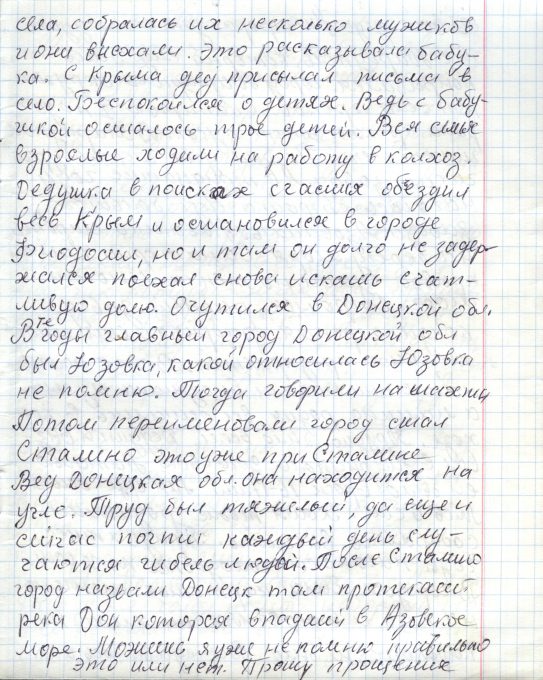 села, собралась их несколько мужиков
и они выехали. Это расказывала бабу-
ка. С Крыма дед присылал письма в
село. Беспокоился о детях. Ведь с бабу-
шкой осталось трое детей. Вся семья
взрослые ходили на работу в колхоз.
Дедушка в поисках счастия объездил
весь Крым и остановился в городе
Фиодосии, но и там он долго не задер-
жался поехал снова искать счаст-
ливую долю. Очутился в Донецкой обл.
В те годы главный город Донецкой обл
был Юзовка, какой относилась Юзовка
не помню. Тогда говорили на шахты
Потом переименовали город стал
Сталино это уже при Сталине
Вед Донецкая обл. она находится на
угле. Труд был тяжелый, да еще и
сейчас почти каждый день слу-
чаются гибель людей. После Сталино
город назвали Донецк там протекает
река Дон которая впадает в Азовское
море. Может я уже не помню правильно
это или нет. Прошу прощения